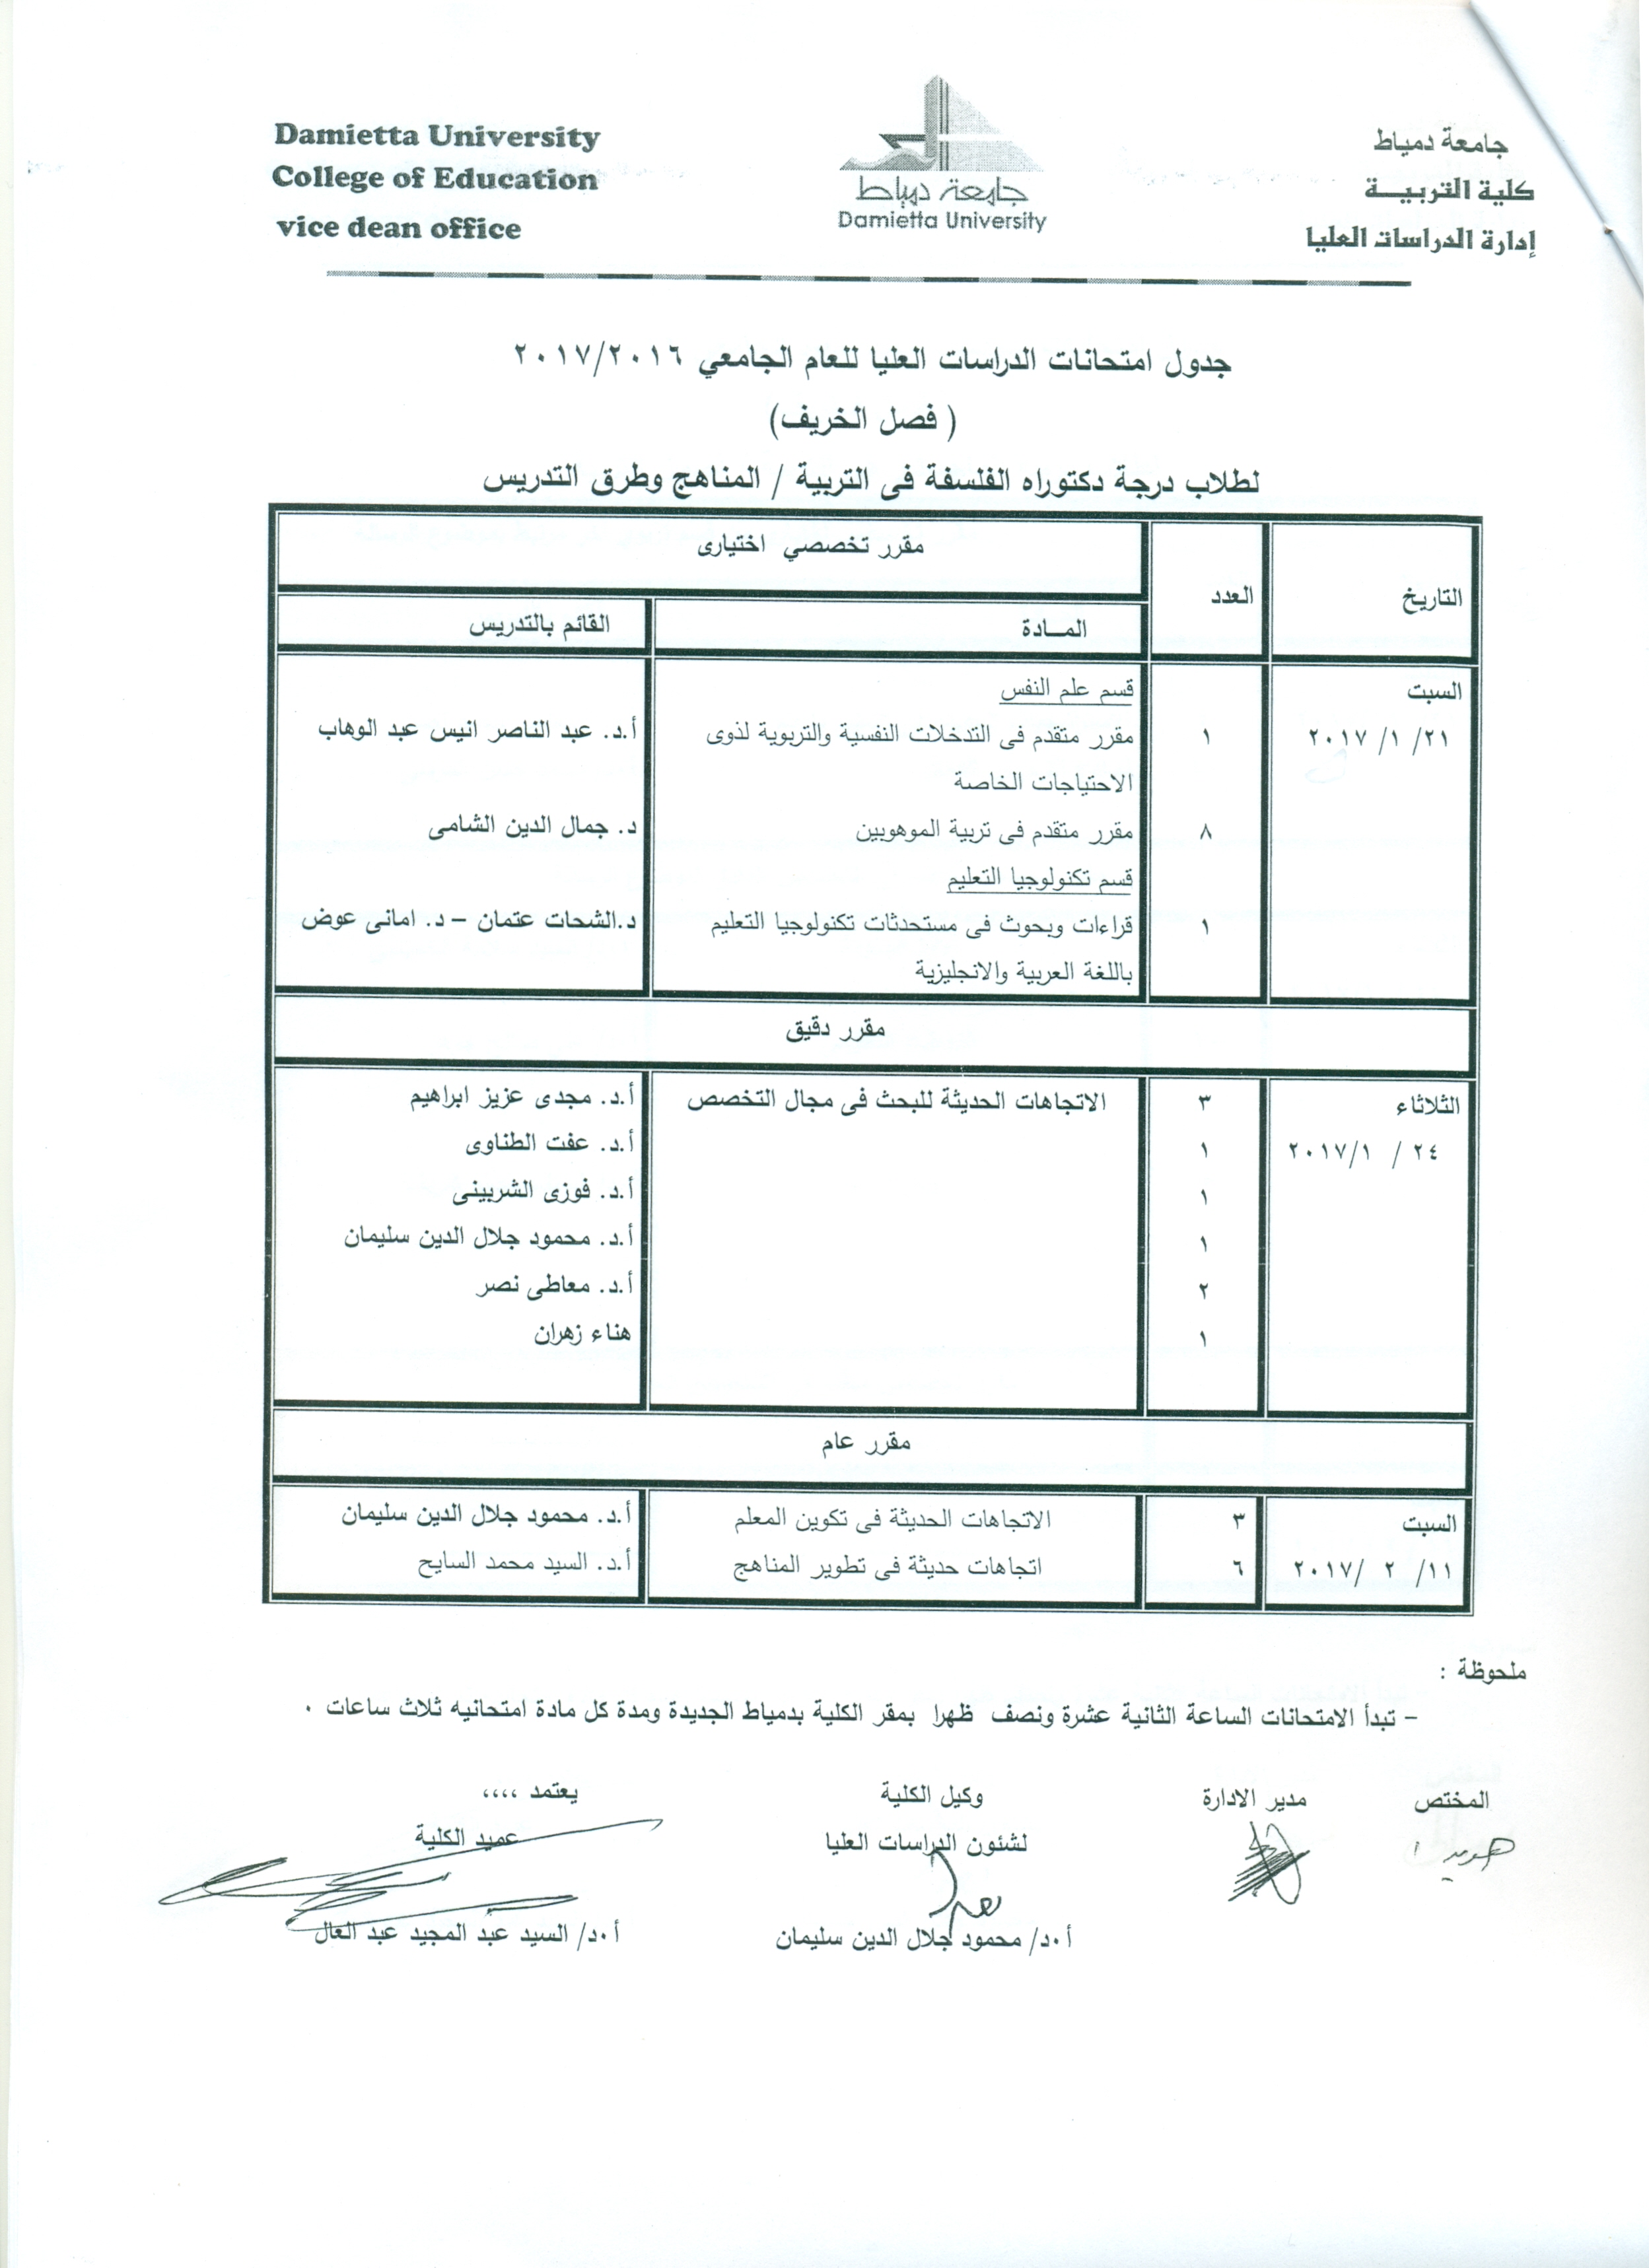 Damietta University
College of Education
vice dean office
جامعة دمياط
Damietta University
جامعة دمياط
كلية التربيـــة
إدارة الدراسات العليا
جدول امتحانات الدراسات العليا للعام الجامعي ٢٠١٧/٢٠١٦
( فصل الخريف)
لطلاب درجة دكتوراه الفلسفة فى التربية / المناهج وطرق التدريس
التاريخ العدد مقرر تخصصي اختيارى
المــادة القائم بالتدريس
السبت قسم علم النفس
٢١/ ١/ ٢٠١٧ ١ مقرر متقدم فى التدخلات النفسية والتربوية لذوى أ.د. عبد الناصر انيس عبد الوهاب
الاحتياجات الخاصة
٨ مقرر متقدم فى تربية الموهوبين د. جمال الدين الشامى
قسم تكنولوجيا التعليم
١ قراءات وبحوث فى مستحدثات تكنولوجيا التعليم د.الشحات عتمان – د. امانى عوض
باللغة العربية والانجليزية
مقرر دقيق
الثلاثاء ٣ الاتجاهات الحديثة للبحث فى مجال التخصص أ.د. مجدى عزيز ابراهيم
٢٤ / ٢٠١٧/١ ١ أ.د. عفت الطناوى
١ أ.د. فوزى الشربينى
١ أ.د. محمود جلال الدين سليمان
٢ أ.د. معاطى نصر
١ هناء زهران
مقرر عام
السبت ٣ الاتجاهات الحديثة فى تكوين المعلم أ.د. محمود جلال الدين سليمان
١١/ ٢ /٢٠١٧ ٦ اتجاهات حديثة فى تطوير المناهج أ.د. السيد محمد السايح
ملحوظة :
- تبدأ الامتحانات الساعة الثانية عشرة ونصف ظهرا بمقر الكلية بدمياط الجديدة ومدة كل مادة امتحانيه ثلاث ساعات ٠
المختص مدير الادارة وكيل الكلية يعتمد ،،،،
لشئون الدراسات العليا عميد الكلية
أ٠د/ محمود جلال الدين سليمان أ٠د/ السيد عبد المجيد عبد العال